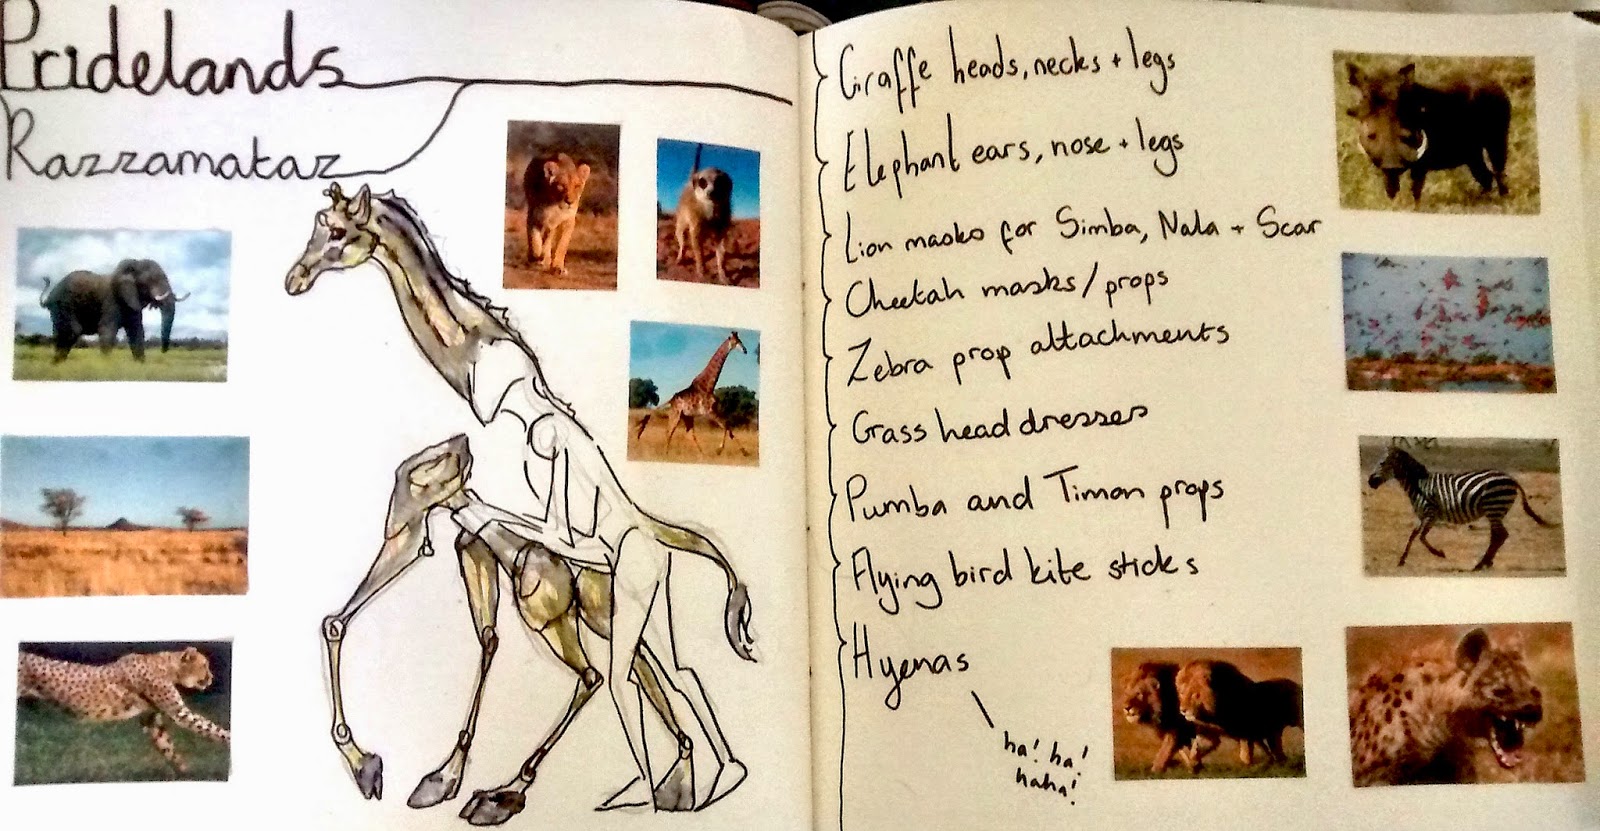 Pridelands
Razzamataz
Giraffe heads, necks + legs
Elephant ears, nose + legs
Lion masks for Simba, Nala + Scar
Cheetah masks/props
Zebra prop attachments
Grass head dresses
Pumba and Timon props
Flying bird kite sticks
Hyenas
ha! ha!
haha!